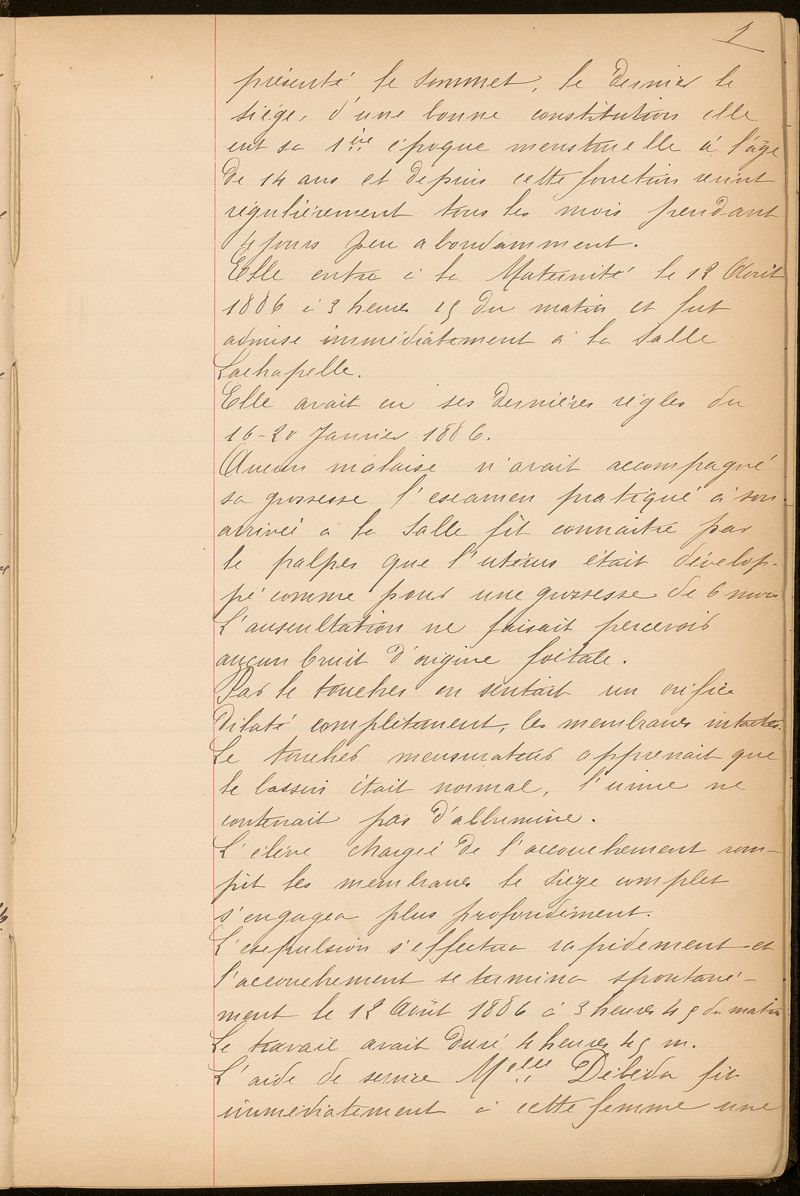 1
présenté le sommet, le dernier le
siége, d'une bonne constitution elle
eut sa 1ère époque menstruelle à l'âge
de 14 ans et depuis cette fonction revint
régulièrement tous les mois pendant
4 jours peu abondamment.
Elle entra à la Maternité le 12 Août
1886 à 3 heures 15 du matin et fut
admise immédiatement à la Salle
Lachapelle.
Elle avait eu ses dernières règles du
16-20 Janvier 1886.
Aucun malaise n'avait accompagné
sa grossesse l'examen pratiqué à son
arrivée à la Salle fit connaitre par
le palper que l'utérus était dévelop-
pé comme pour une grossesse de 6 mois
L'auscultation ne faisait percevoir
aucun bruit d'origine foetale.
Par le toucher on sentait un orifice
dilaté complètement, les membranes intactes.
Le toucher mensurateur apprenait que
le bassin était normal, l'urine ne
contenait pas d'albumine.
L'élève chargée de l'accouchement rom-
pit les membranes le siége complet
s'engagea plus profondément.
L'expulsion s'effectua rapidement et
l'accouchement se termina spontané-
ment le 12 Août 1886 à 3 heures 45 du matin
Le travail avait duré 4 heures 45 m.
L'aide de service Melle Débéda fit
immédiatement à cette femme une